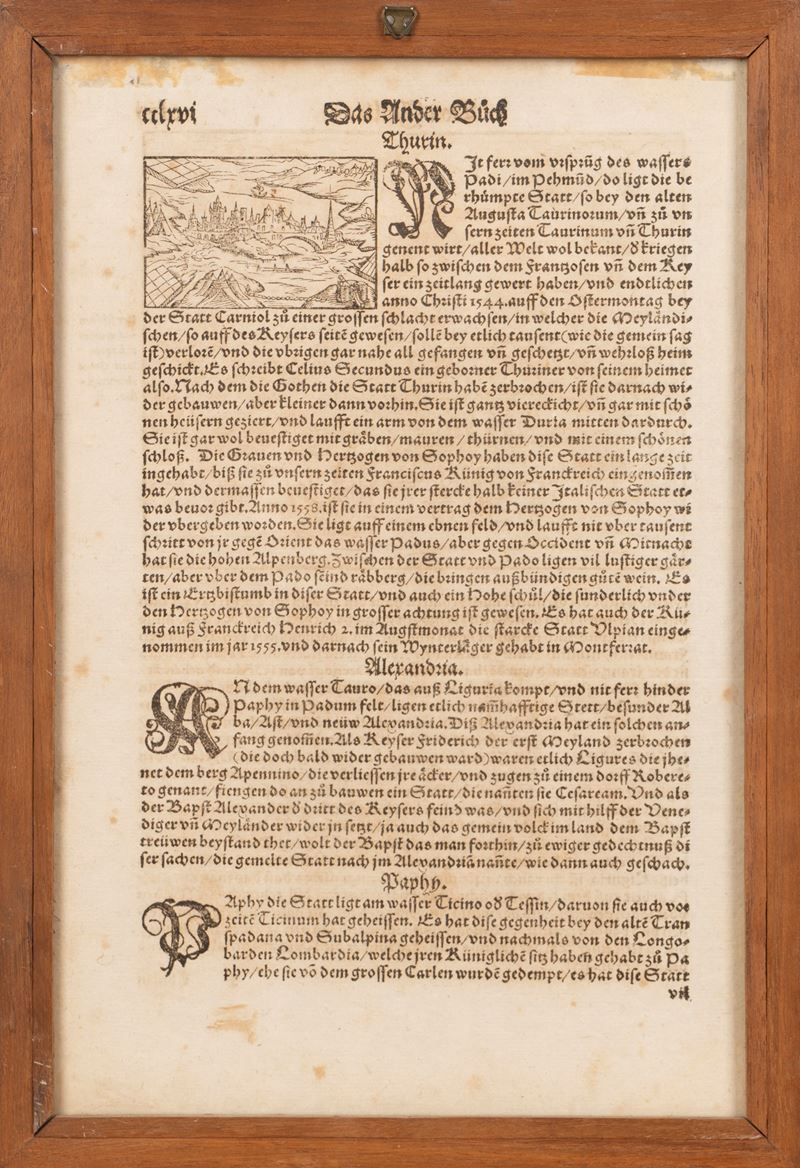 cclxvi Das Ander Bůch
Thurin.
NIt ferr vom vrsprūg des wassers
Padi/im Pehmūd/do ligt die be
rhümpte Statt/so bey den alten
Augusta Taurinorum/vñ zů vn
sern zeiten Taurinum vñ Thurin
genent wirt/aller Welt wol bekant/d kriegen
halb so zwischen dem Frantzosen vñ dem Key
ser ein zeitlang gewert haben/vnd endtlichen
anno Christi 1544. auff den Ostermontag bey
der Statt Carniol zů einer grossen schlacht erwachsen/in welcher die Meyländi-
schen/so auff des Keysers seitē gewesen/sollē bey etlich tausent (wie die gemein sag
ist) verlorē/vnd die vbrigen gar nahe all gefangen vñ geschetzt/vñ wehrloß heim
geschickt. Es schreibt Celius Secundus ein geborner Thuriner von seinem heimet
also. Nach dem die Gothen die Statt Thurin habē zerbrochen/ist sie darnach wi-
der gebauwen/aber kleiner dann vorhin. Sie ist gantz viereckicht/vñ gar mit schö
nen heüsern geziert/vnd laufft ein arm von dem wasser Duria mitten dardurch.
Sie ist gar wol beuestiget mit gräben/mauren/thürnen/vnd mit einem schönen
schloß. Die Grauen vnd Hertzogen von Sophoy haben dise Statt ein lange zeit
ingehabt/biß sie zů vnsern zeiten Franciscus Künig von Franckreich eingenom̄en
hat/vnd dermassen beuestiget/das sie jrer stercke halb keiner Italischen Statt et-
was beuor gibt. Anno 1558. ist sie in einem vertrag dem Hertzogen von Sophoy wi
der vbergeben worden. Sie ligt auff einem ebnen feld/vnd laufft nit vber tausent
schritt von jr gegē Orient das wasser Padus/aber gegen Occident vñ Mitnacht
hat sie die hohen Alpenberg. Zwischen der Statt vnd Pado ligen vil lustiger gär-
ten/aber vber dem Pado seind räbberg/die bringen außbündigen gůtē wein. Es
ist ein Ertzbistumb in diser Statt/vnd auch ein Hohe schůl/die sunderlich vnder
den Hertzogen von Sophoy in grosser achtung ist gewesen. Es hat auch der Kü-
nig auß Franckreich Henrich 2. im Augstmonat die starcke Statt Vlpian einge-
nommen im jar 1555. vnd darnach sein Wynterläger gehabt in Montferrat.
Alexandria.
AN dem wasser Tauro/das auß Liguria kompt/vnd nit ferr hinder
Paphy in Padum felt/ligen etlich nam̄hafftige Stett/besunder Al
ba/Ast/vnd neüw Alexandria. Diß Alexandria hat ein solchen an-
fang genom̄en. Als Keyser Friderich der erst Meyland zerbrochen
(die doch bald wider gebauwen ward) waren etlich Ligures die jhe-
net dem berg Apennino/die verliessen jre äcker/vnd zugen zů einem dorff Robere-
to genant/fiengen do an zů bauwen ein Statt/die nañten sie Cesaream. Vnd als
der Bapst Alexander d dritt des Keysers feind was/vnd sich mit hilff der Vene-
diger vñ Meyländer wider jn setzt/ja auch das gemein volck im land dem Bapst
treüwen beystand thet/wolt der Bapst das man forthin/zů ewiger gedechtnuß di
ser sachen/die gemelte Statt nach jm Alexandriā nañte/wie dann auch geschach.
Paphy.
PAphy die Statt ligt am wasser Ticino od Tessin/daruon sie auch vor
zeitē Ticinum hat geheissen. Es hat dise gegenheit bey den altē Tran
spadana vnd Subalpina geheissen/vnd nachmals von den Longo-
barden Lombardia/welche jren Küniglichē sitz haben gehabt zů Pa
phy/ehe sie vō dem grossen Carlen wurdē gedempt/es hat dise Statt
vil